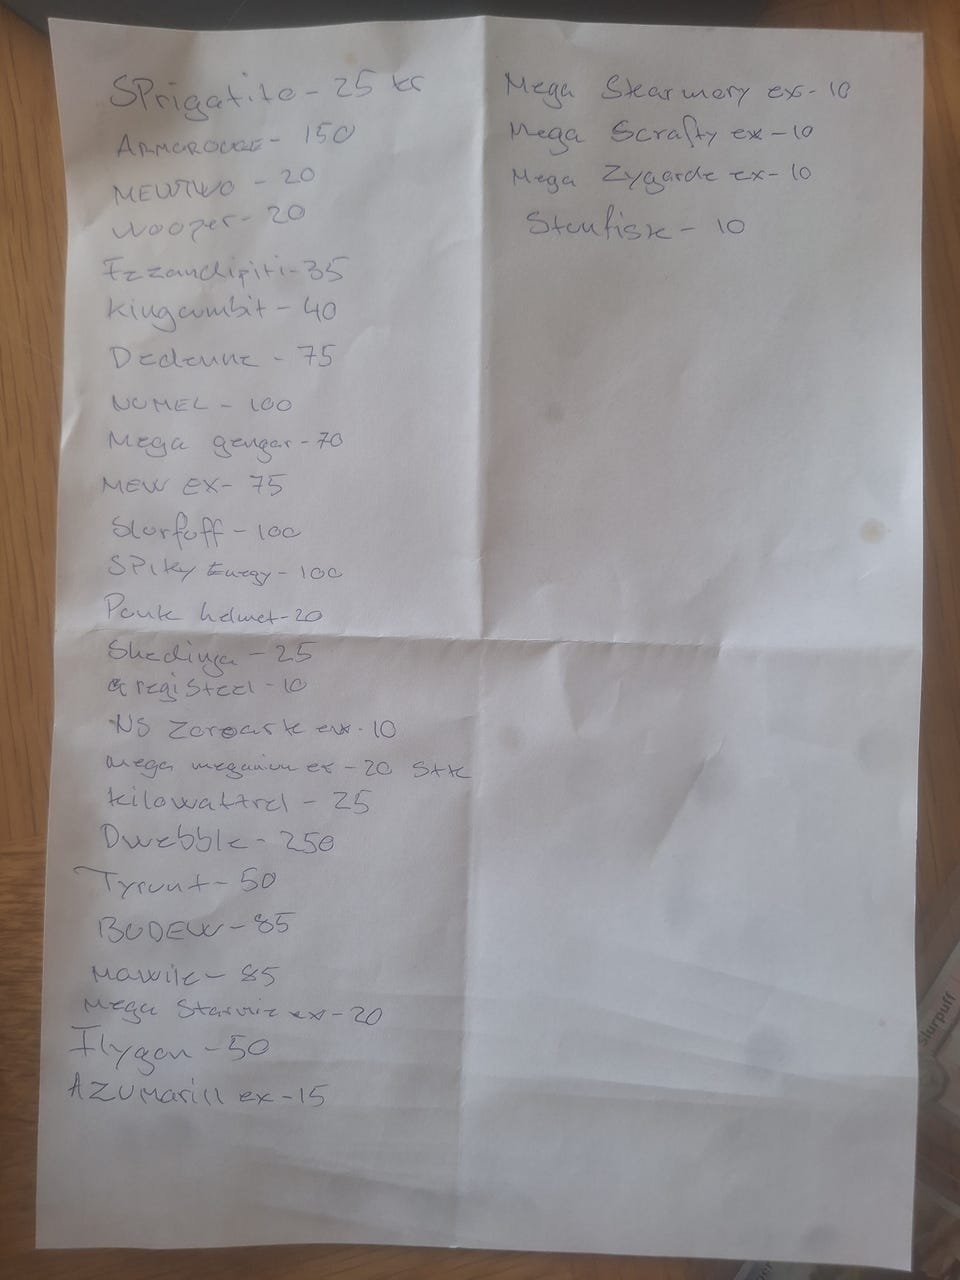 SPrigatito - 25 kr
ARMOROUGE - 150
MEWTWO - 20
Wooper - 20
Fezzandipiti - 35
Kingambit - 40
Dedenne - 75
NUMEL - 100
Mega gengar - 70
MEW EX - 75
Slurfuff - 100
SPiky Energy - 100
Punk helmet - 20
Shedinja - 25
regiSteel - 10
NS Zoroark ex - 10
Mega meganium ex - 20 Stk
Kilowattrel - 25
Dwebble - 250
Tyrunt - 50
BUDEW - 85
Mawile - 85
Mega Starmie ex - 20
Flygon - 50
AZUMarill ex - 15
Mega Skarmory ex - 10
Mega Scrafty ex - 10
Mega Zygarde ex - 10
Stunfisk - 10
Slurpuff